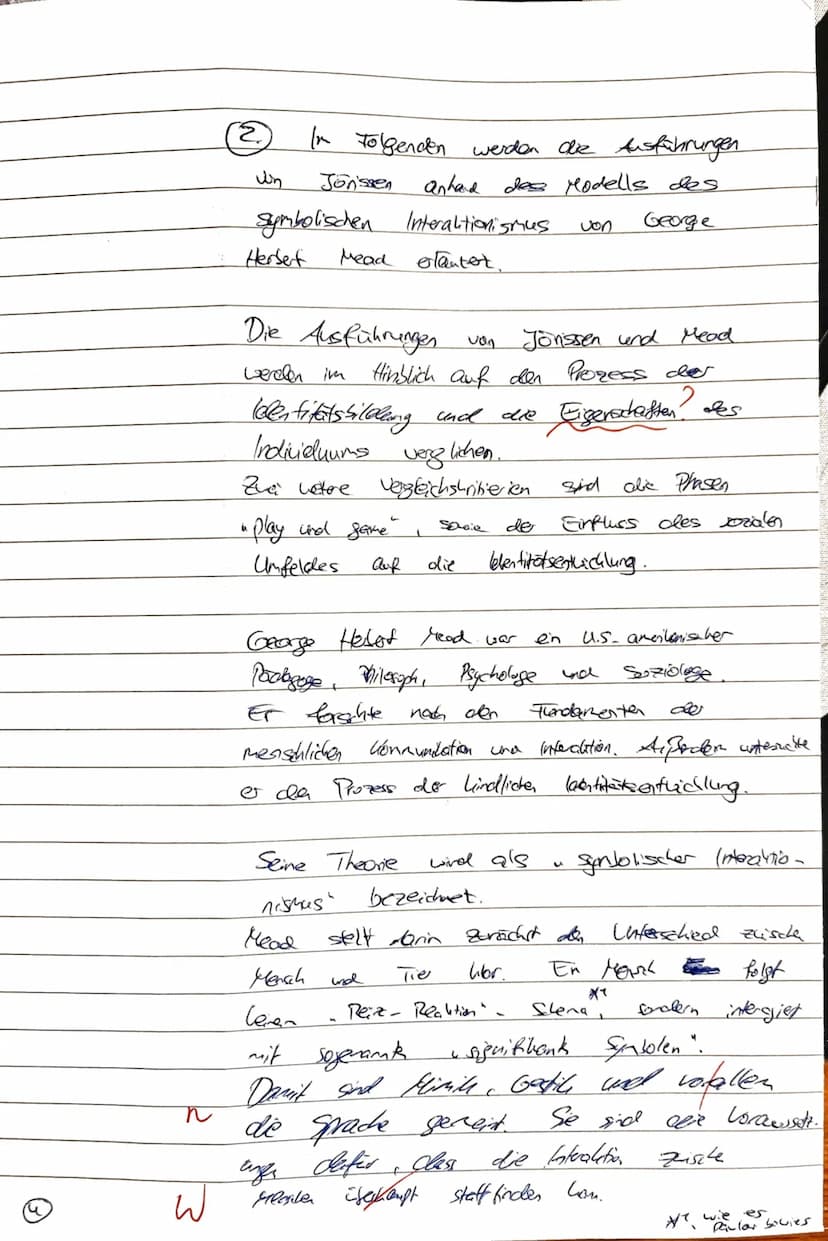 2. Im Folgenden werden die Ausführungen
von Jörissen anhand des Modells des
symbolischen Interaktionismus von George
Herbert Mead erläutert.
Die Ausführungen von Jörissen und Mead
werden im Hinblick auf den Prozess der
Identitätsbildung und die Eigenschaften? des
Individuums verglichen.
Zwei weitere Vergleichskriterien sind die Phasen
"play und game", sowie der Einfluss des sozialen
Umfeldes auf die Identitätsentwicklung.
George Herbert Mead war ein U.S-amerikanischer
Pädagoge, Philosoph, Psychologe und Soziologe.
Er forschte nach den Fundamenten der
menschlichen Kommunikation und Interaktion. Außerdem untersuchte
er den Prozess der kindlichen Identitätsentwicklung.
Seine Theorie wird als "symbolischer Interaktio-
nismus" bezeichnet.
Mead stellt darin zunächst den Unterschied zwischen
Mensch und Tier klar. Ein Mensch folgt
keinem "Reiz-Reaktion"-Schema*1, sondern interagiert
mit sogenannten "signifikanten Symbolen".
Damit sind Mimik, Gestik und vor allem
n die Sprache gemeint. Sie sind die Voraussetz-
ungen dafür, dass die Interaktion zwischen
W Menschen überhaupt stattfinden kann.
4
*1, wie es